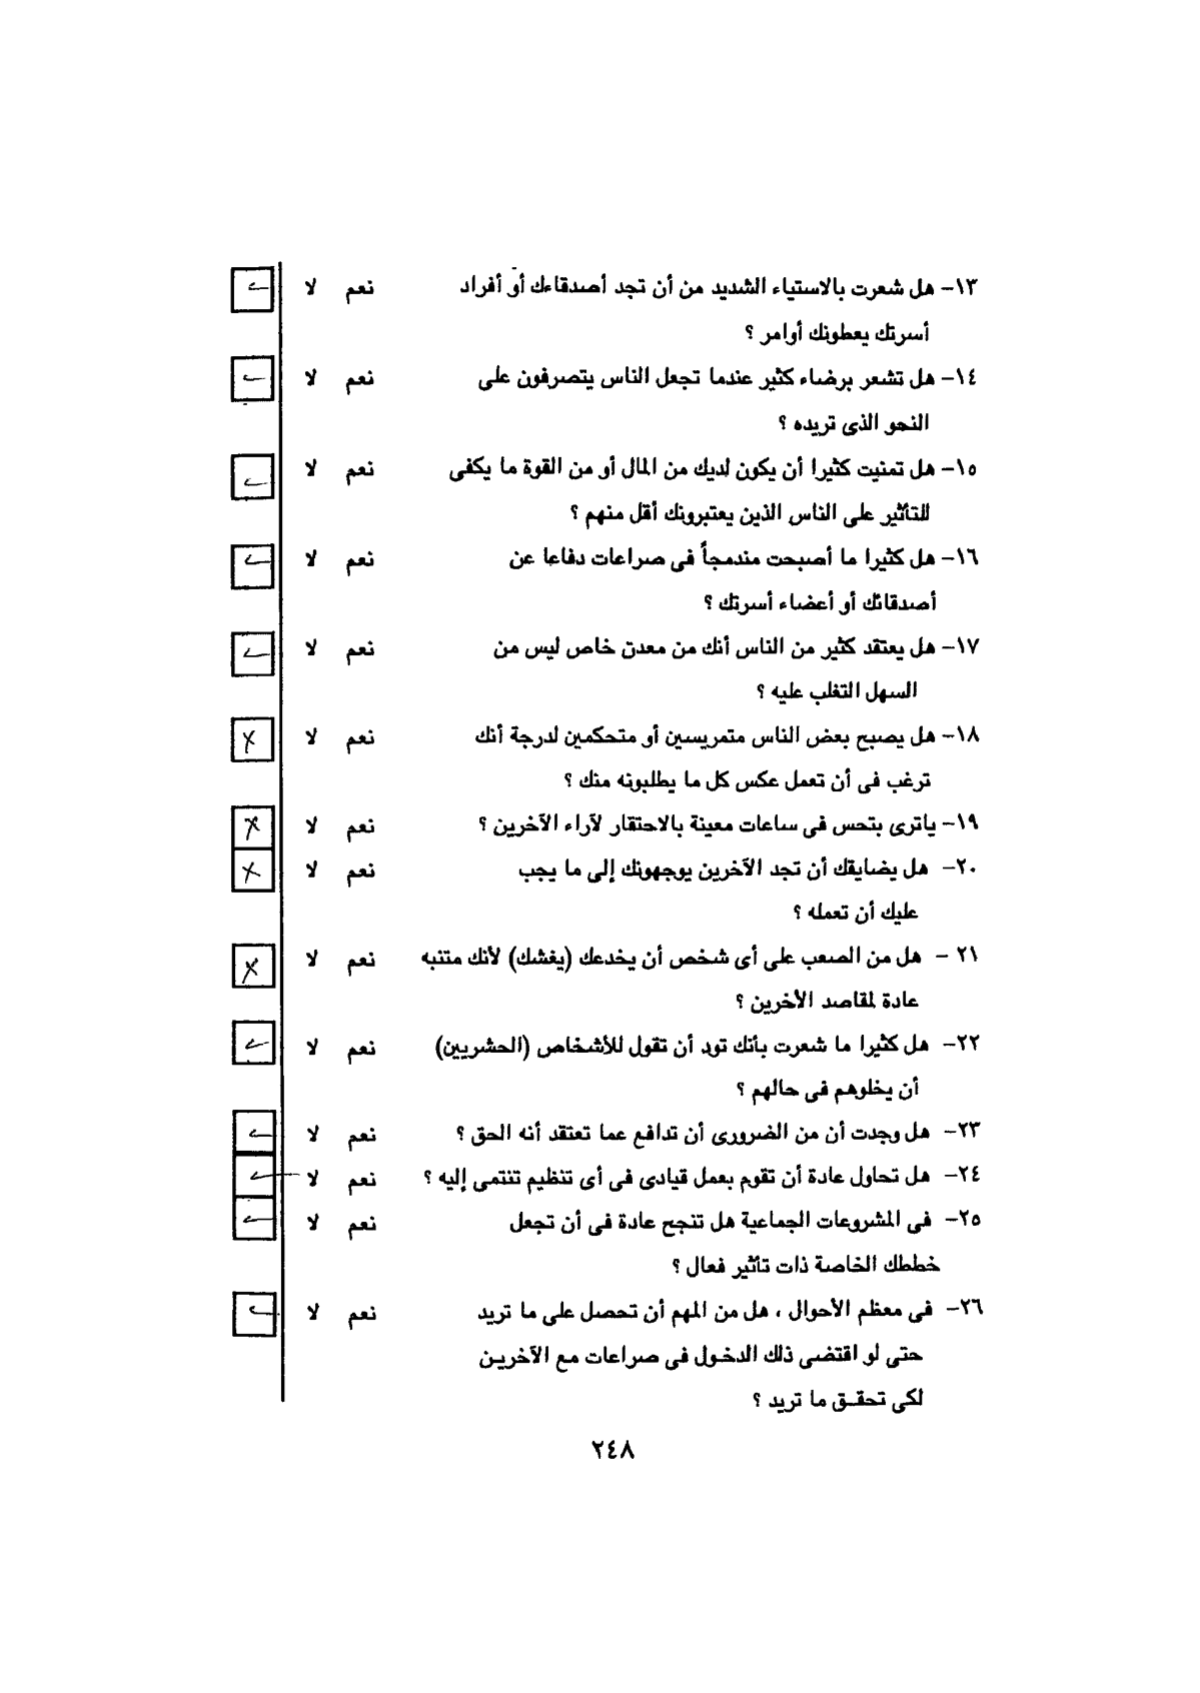 ١٣- هل شعرت بالاستياء الشديد من أن تجد أصدقاءك أو أفراد نعم لا
أسرتك يعطونك أوامر ؟
١٤- هل تشعر برضاء كثير عندما تجعل الناس يتصرفون على نعم لا
النحو الذى تريده ؟
١٥- هل تمنيت كثيرا أن يكون لديك من المال أو من القوة ما يكفى نعم لا
للتأثير على الناس الذين يعتبرونك أقل منهم ؟
١٦- هل كثيرا ما أصبحت مندمجاً فى صراعات دفاعا عن نعم لا
أصدقائك أو أعضاء أسرتك ؟
١٧- هل يعتقد كثير من الناس أنك من معدن خاص ليس من نعم لا
السهل التغلب عليه ؟
١٨- هل يصبح بعض الناس متمريسين أو متحكمين لدرجة أنك نعم لا
ترغب فى أن تعمل عكس كل ما يطلبونه منك ؟
١٩- ياترى بتحس فى ساعات معينة بالاحتقار لآراء الآخرين ؟ نعم لا
٢٠- هل يضايقك أن تجد الآخرين يوجهونك إلى ما يجب نعم لا
عليك أن تعمله ؟
٢١ - هل من الصعب على أى شخص أن يخدعك (يغشك) لأنك متنبه نعم لا
عادة لمقاصد الأخرين ؟
٢٢- هل كثيرا ما شعرت بأنك تود أن تقول للأشخاص (الحشريين) نعم لا
أن يخلوهم فى حالهم ؟
٢٣- هل وجدت أن من الضرورى أن تدافع عما تعتقد أنه الحق ؟ نعم لا
٢٤- هل تحاول عادة أن تقوم بعمل قيادى فى أى تنظيم تنتمى إليه ؟ نعم لا
٢٥- فى المشروعات الجماعية هل تنجح عادة فى أن تجعل نعم لا
خططك الخاصة ذات تأثير فعال ؟
٢٦- فى معظم الأحوال ، هل من المهم أن تحصل على ما تريد نعم لا
حتى لو اقتضى ذلك الدخول فى صراعات مع الآخرين
لكى تحقق ما تريد ؟
٢٤٨